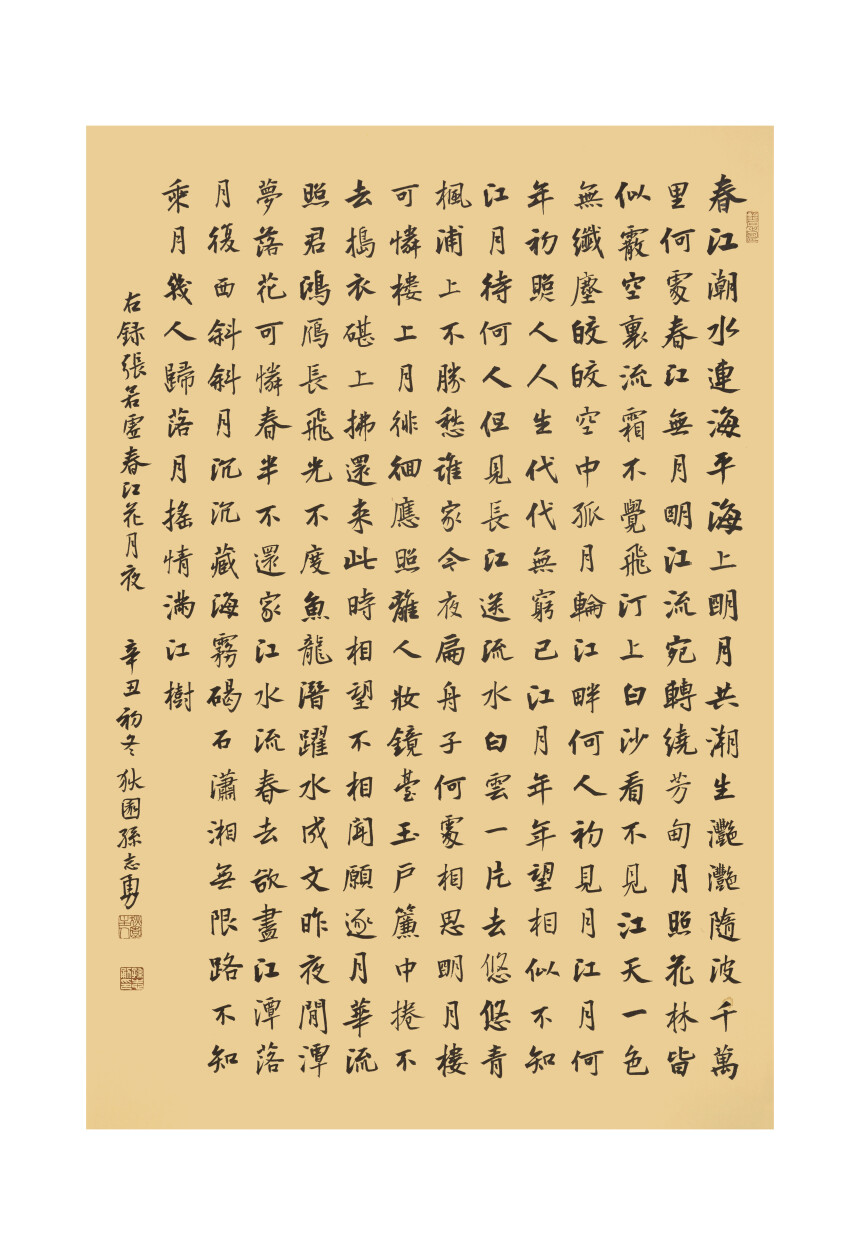 春江潮水連海平海上明月共潮生灧灧隨波千萬
里何處春江無月明江流宛轉繞芳甸月照花林皆
似霰空裏流霜不覺飛汀上白沙看不見江天一色
無纖塵皎皎空中孤月輪江畔何人初見月江月何
年初照人人生代代無窮已江月年年望相似不知
江月待何人但見長江送流水白雲一片去悠悠青
楓浦上不勝愁誰家今夜扁舟子何處相思明月樓
可憐樓上月徘徊應照離人妝鏡臺玉戶簾中捲不
去搗衣碪上拂還来此時相望不相聞願逐月華流
照君鴻鴈長飛光不度魚龍潛躍水成文昨夜閒潭
夢落花可憐春半不還家江水流春去欲盡江潭落
月復西斜斜月沉沉藏海霧碣石瀟湘無限路不知
乘月幾人歸落月搖情滿江樹
右録張若虛春江花月夜 辛丑初冬狄園孫志勇